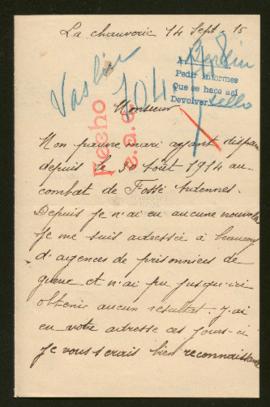 La chauvonie 14 Sept. 15
Vaslin
Berlin
104
Pedir informes
Que se hace así
Devolver sello
Hecho
Monsieur
Mon pauvre mari ayant disparu
depuis le 30 Août 1914 au
combat de Fossé Ardennes.
Depuis je n'ai eu aucune nouvelle
Je me suis adressée à beaucoup
d'agences de prisonniers de
guerre et n'ai pu jusqu'ici
obtenir aucun résultat. J'ai
eu votre adresse ces jours-ci
Je vous serais bien reconnaissante